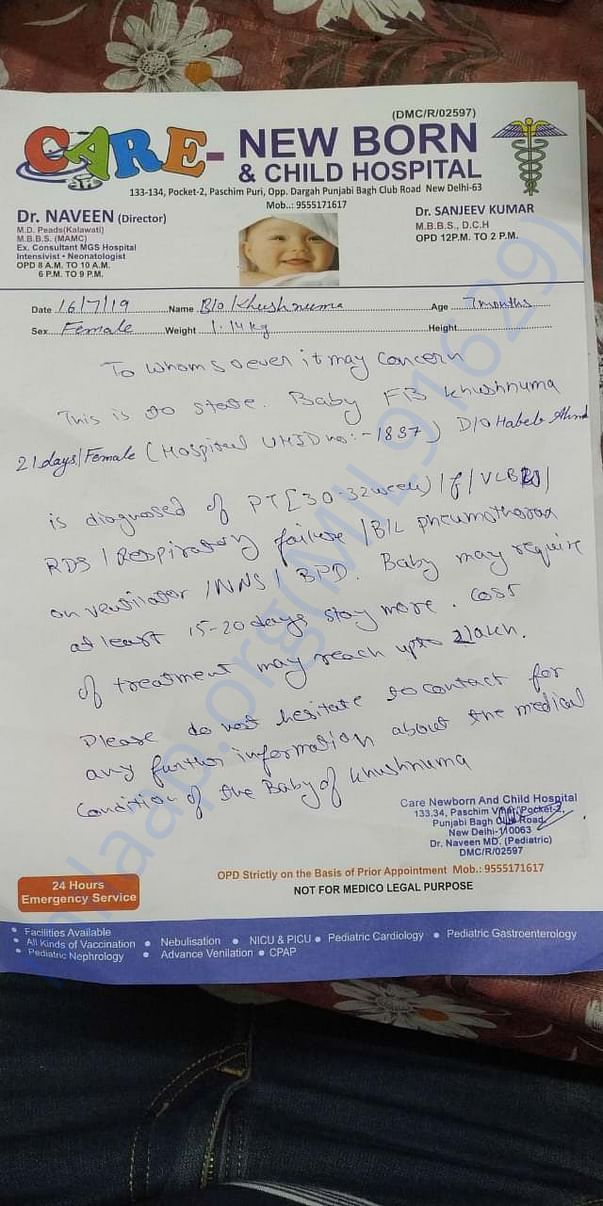 (DMC/R/02597)
CARE - NEW BORN
& CHILD HOSPITAL
133-134, Pocket-2, Paschim Puri, Opp. Dargah Punjabi Bagh Club Road New Delhi-63
Mob..: 9555171617
Dr. NAVEEN (Director)
M.D. Peads(Kalawati)
M.B.B.S. (MAMC)
Ex. Consultant MGS Hospital
Intensivist • Neonatologist
OPD 8 A.M. TO 10 A.M.
6 P.M. TO 9 P.M.
Dr. SANJEEV KUMAR
M.B.B.S., D.C.H
OPD 12P.M. TO 2 P.M.
Date 16/7/19 Name B/O Khushnuma Age 7 months
Sex Female Weight 1.14 kg Height
To whomsoever it may concern
This is to state. Baby FB Khushnuma
21 days/Female (Hospital UHID no:- 1837) D/O Habeb Ahmd
is diagnosed of PT [30-32 week) / f / VLBW /
RDS / Respiratory failure / B/L pneumothorax
on ventilator / NNS / BPD. Baby may require
at least 15-20 days stay more. Cost
of treatment may reach upto 2 lakh.
Please do not hesitate to contact for
any further information about the medical
Condition of the Baby of Khushnuma
Care Newborn And Child Hospital
133,34, Paschim Vihar, Pocket-2,
Punjabi Bagh Club Road,
New Delhi-110063
Dr. Naveen MD. (Pediatric)
DMC/R/02597
OPD Strictly on the Basis of Prior Appointment Mob.: 9555171617
NOT FOR MEDICO LEGAL PURPOSE
24 Hours
Emergency Service
• Facilities Available
• All Kinds of Vaccination • Nebulisation • NICU & PICU • Pediatric Cardiology • Pediatric Gastroenterology
• Pediatric Nephrology • Advance Venilation • CPAP
milaap.org(MIL91629)